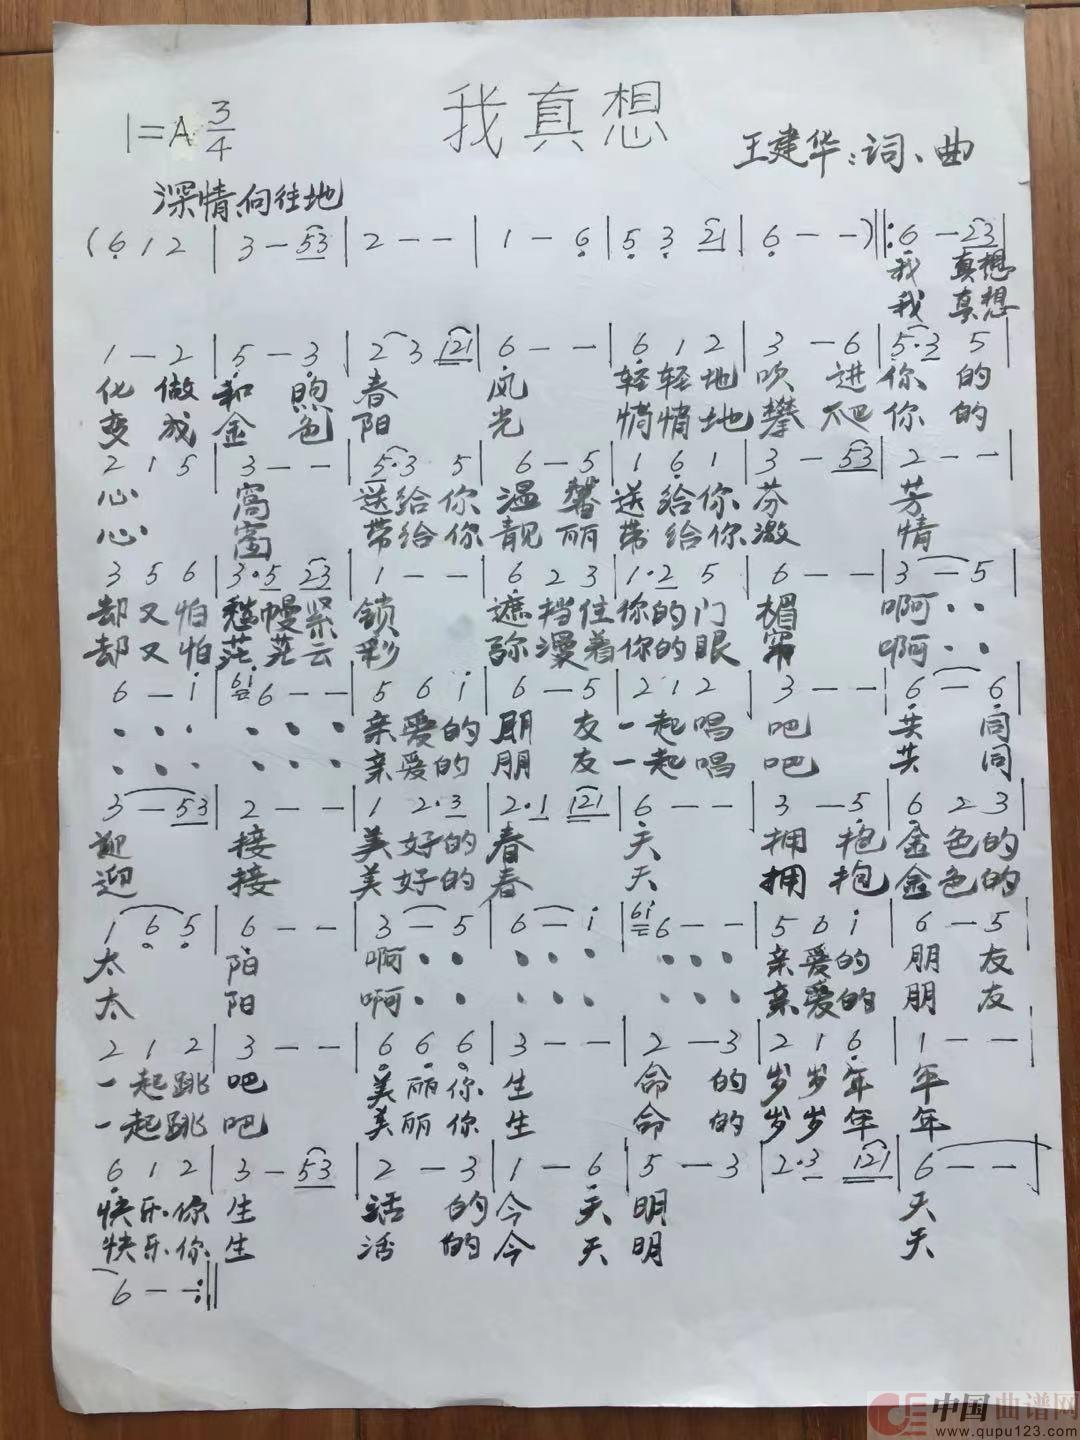 我真想
1=A 3/4
王建华:词、曲
深情、向往地
(6 1 2 | 3 - 53 | 2 - - | 1 - 6 | 5 3 21 | 6 - - ) ‖: 6 - 23 |
我 真想
我 真想
1 - 2 | 5 - 3 | 2 3 121 | 6 - - | 6 1 2 | 3 - 6 | 5·3 5 |
化 做 和 煦 春 风 轻轻地 吹 进 你 的
变 成 金 色 阳 光 悄悄地 攀 爬 你 的
2 1 5 | 3 - - | 5·3 5 | 6 - 5 | 1 6 1 | 3 - 53 | 2 - - |
心 窝 送给你 温 馨 送给你 芬 芳
心 窗 带给你 靓 丽 带给你 激 情
3 5 6 | 3·5 23 | 1 - - | 6 2 3 | 1·2 5 | 6 - - | 3 - 5 |
却又怕 愁幔紧 锁 遮挡住 你的门 楣 啊··
却又怕 茫茫云 彩 弥漫着 你的眼 帘 啊··
6 - i | 6i 6 - - | 5 6 i | 6 - 5 | 2 1 2 | 3 - - | 6 - 6 |
· · · · · · 亲爱的 朋 友 一起唱 吧 共 同
· · · · · · 亲爱的 朋 友 一起唱 吧 共 同
3 - 53 | 2 - - | 1 2·3 | 2·1 121 | 6 - - | 3 - 5 | 6 2 3 |
迎 接 美好的 春 天 拥 抱 金色的
迎 接 美好的 春 天 拥 抱 金色的
1 6 5 | 6 - - | 3 - 5 | 6 - i | 6i 6 - - | 5 6 i | 6 - 5 |
太 阳 啊·· · · · · · · 亲爱的 朋 友
太 阳 啊·· · · · · · · 亲爱的 朋 友
2 1 2 | 3 - - | 6 6 6 | 3 - - | 2 - 3 | 2 1 6 | 1 - - |
一起跳 吧 美丽你 生 命 的 岁岁年 年
一起跳 吧 美丽你 生 命 的 岁岁年 年
6 1 2 | 3 - 53 | 2 - 3 | 1 - 6 | 5 - 3 | 2·3 121 | 6 - - |
快乐你 生 活 的 今 天 明 天
快乐你 生 活 的 今 天 明 天
6 - - :‖
中国曲谱网
www.qupu123.com